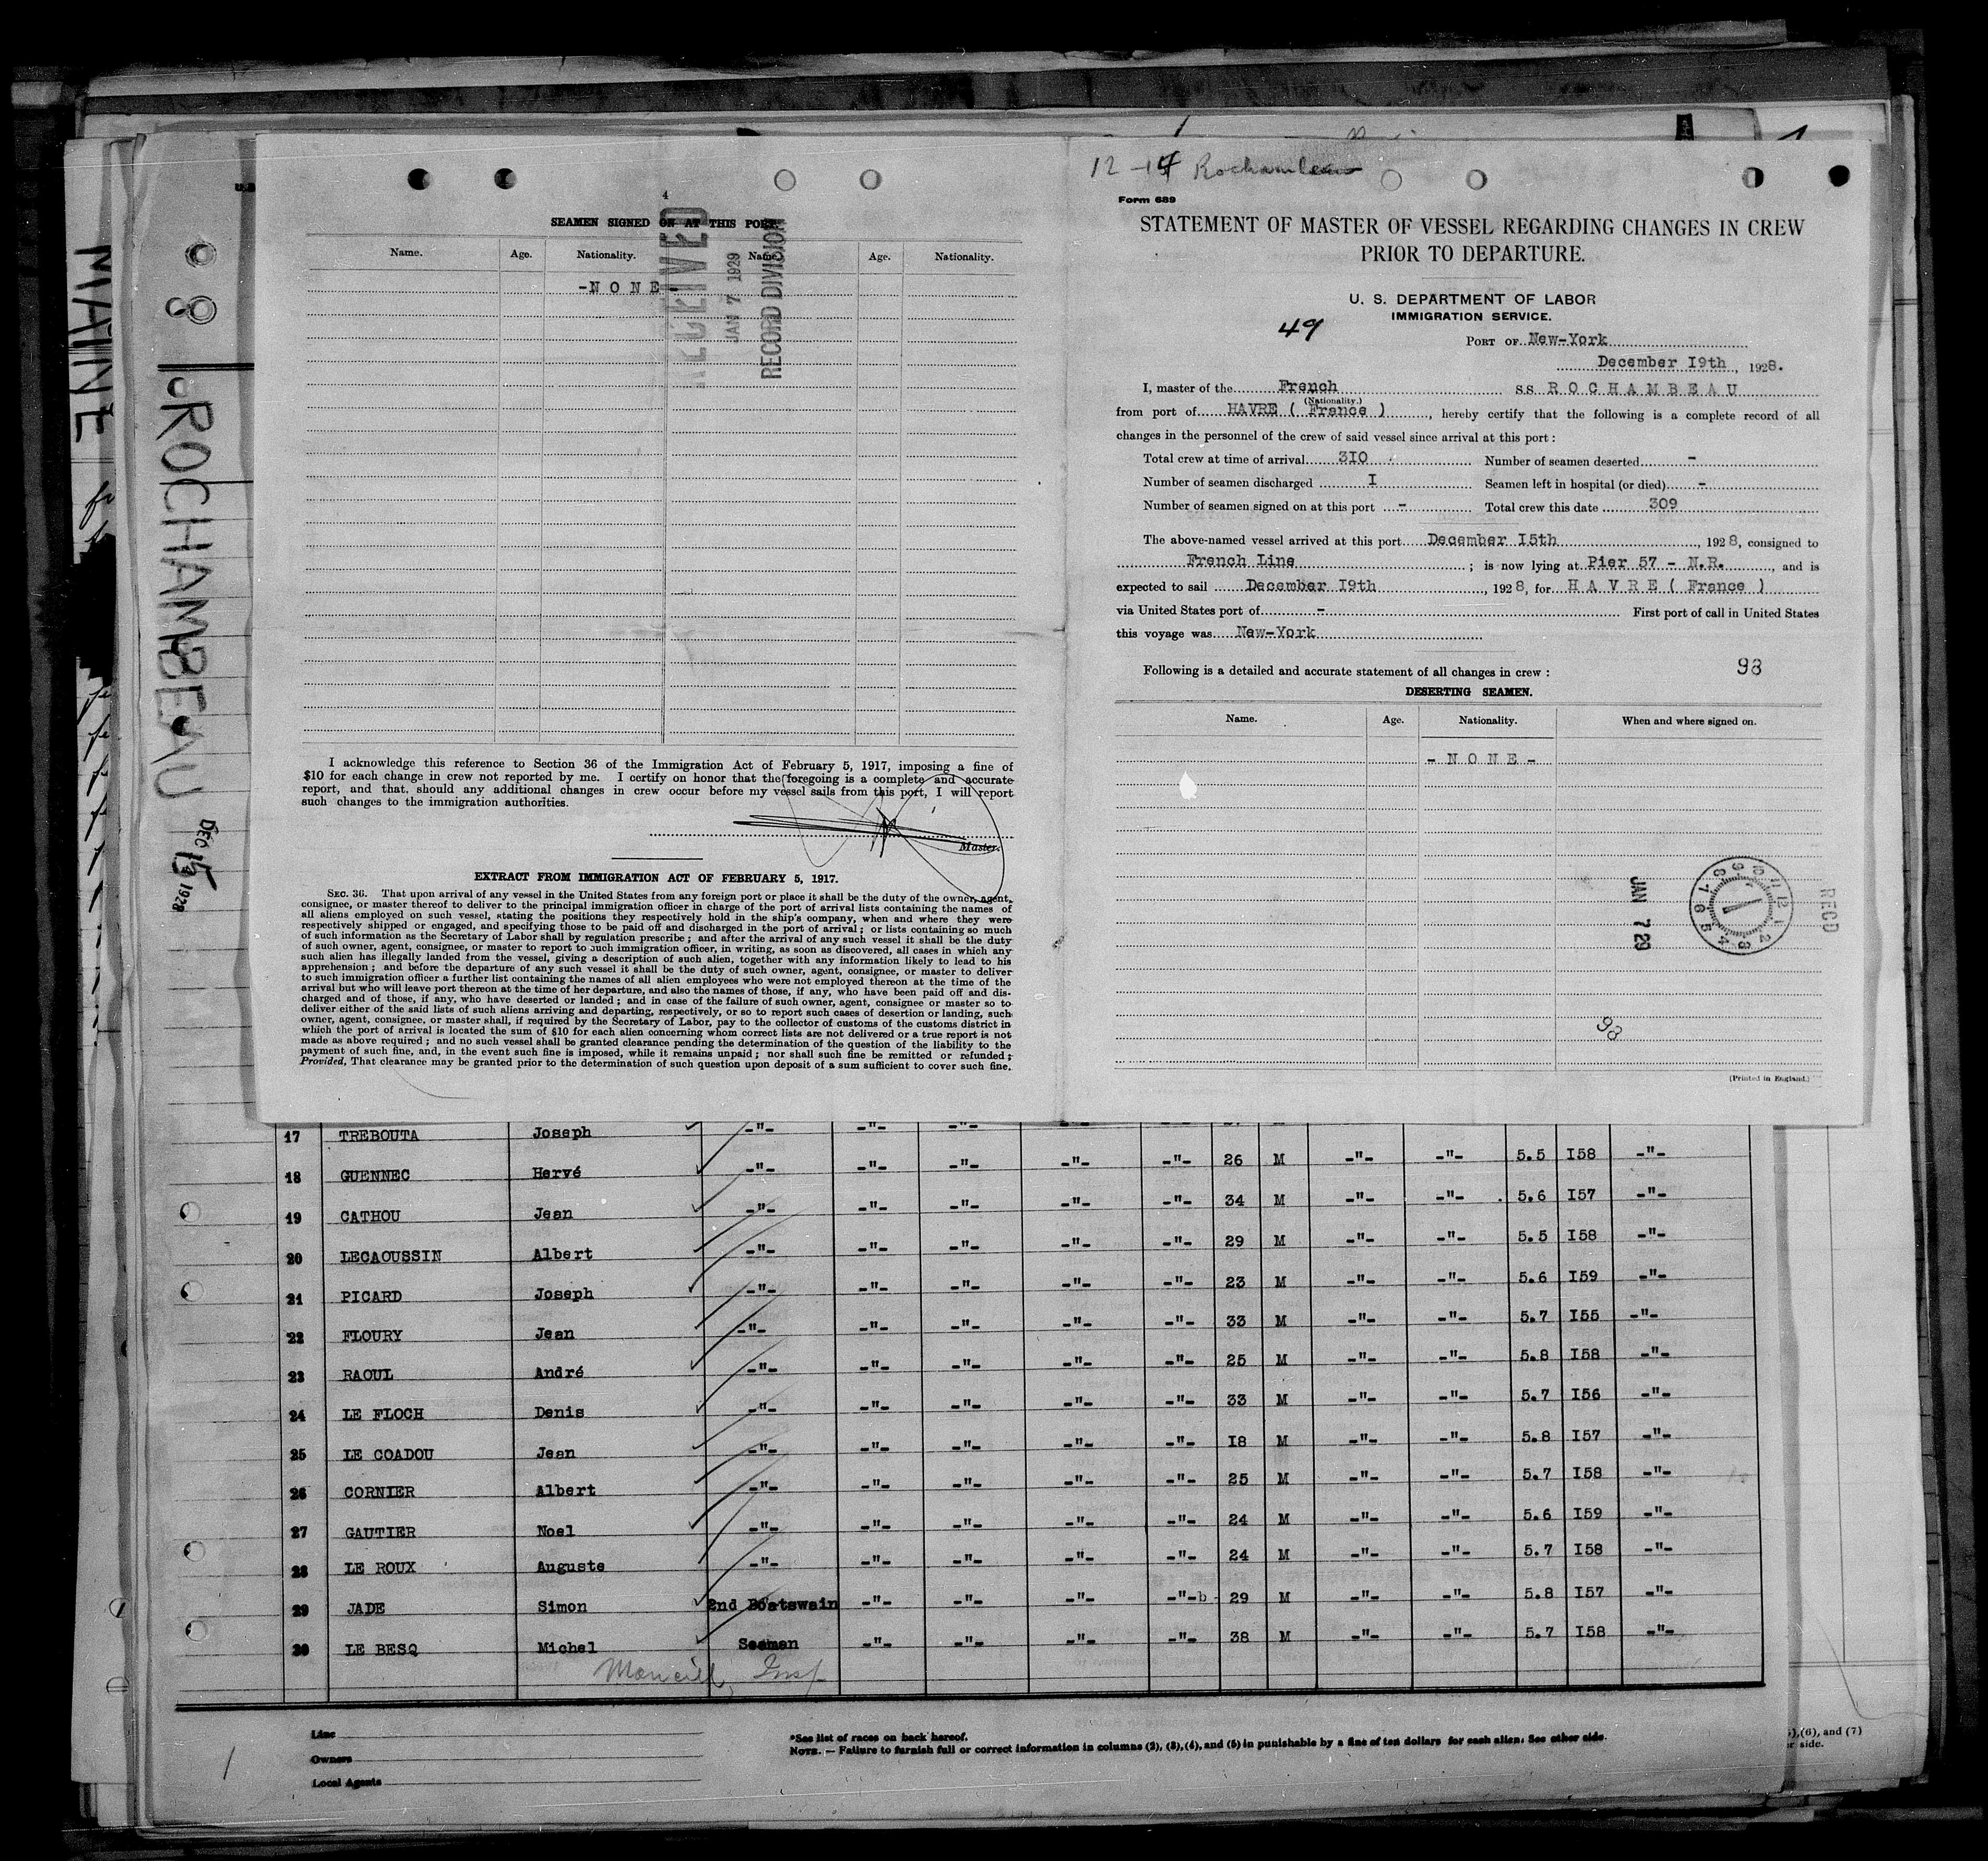 MAINE
8
ROCHAMBEAU
DEC 15 1928
4
SEAMEN SIGNED ON AT THIS PORT
Name. Age. Nationality. Name. Age. Nationality.
-N O N E-
RECEIVED
JAN 7 1929
RECORD DIVISION
I acknowledge this reference to Section 36 of the Immigration Act of February 5, 1917, imposing a fine of
$10 for each change in crew not reported by me. I certify on honor that the foregoing is a complete and accurate
report, and that should any additional changes in crew occur before my vessel sails from this port, I will report
such changes to the immigration authorities.
Master.
EXTRACT FROM IMMIGRATION ACT OF FEBRUARY 5, 1917.
SEC. 36. That upon arrival of any vessel in the United States from any foreign port or place it shall be the duty of the owner, agent,
consignee, or master thereof to deliver to the principal immigration officer in charge of the port of arrival lists containing the names of
all aliens employed on such vessel, stating the positions they respectively hold in the ship's company, when and where they were
respectively shipped or engaged, and specifying those to be paid off and discharged in the port of arrival; or lists containing so much
of such information as the Secretary of Labor shall by regulation prescribe; and after the arrival of any such vessel it shall be the duty
of such owner, agent, consignee, or master to report to such immigration officer, in writing, as soon as discovered, all cases in which any
such alien has illegally landed from the vessel, giving a description of such alien, together with any information likely to lead to his
apprehension; and before the departure of any such vessel it shall be the duty of such owner, agent, consignee, or master to deliver
to such immigration officer a further list containing the names of all alien employees who were not employed thereon at the time of the
arrival but who will leave port thereon at the time of her departure, and also the names of those, if any, who have been paid off and dis-
charged and of those, if any, who have deserted or landed; and in case of the failure of such owner, agent, consignee or master so to
deliver either of the said lists of such aliens arriving and departing, respectively, or so to report such cases of desertion or landing, such
owner, agent, consignee, or master shall, if required by the Secretary of Labor, pay to the collector of customs of the customs district in
which the port of arrival is located the sum of $10 for each alien concerning whom correct lists are not delivered or a true report is not
made as above required; and no such vessel shall be granted clearance pending the determination of the question of the liability to the
payment of such fine, and, in the event such fine is imposed, while it remains unpaid; nor shall such fine be remitted or refunded;
Provided, That clearance may be granted prior to the determination of such question upon deposit of a sum sufficient to cover such fine.
12-14 Rochambeau
Form 689
STATEMENT OF MASTER OF VESSEL REGARDING CHANGES IN CREW
PRIOR TO DEPARTURE.
U. S. DEPARTMENT OF LABOR
IMMIGRATION SERVICE.
49
PORT OF New-York
December I9th, 1928.
I, master of the French SS R O C H A M B E A U
(Nationality.)
from port of HAVRE ( France ), hereby certify that the following is a complete record of all
changes in the personnel of the crew of said vessel since arrival at this port:
Total crew at time of arrival 3I0 Number of seamen deserted -
Number of seamen discharged I Seamen left in hospital (or died) -
Number of seamen signed on at this port - Total crew this date 309
The above-named vessel arrived at this port December I5th, 1928, consigned to
French Line; is now lying at Pier 57 - N.R., and is
expected to sail December I9th, 1928, for H A V R E ( France )
via United States port of - First port of call in United States
this voyage was New-York
98
Following is a detailed and accurate statement of all changes in crew:
DESERTING SEAMEN.
Name. Age. Nationality. When and where signed on.
- N O N E -
JAN 7 29
RECD
98
(Printed in England.)
17 TREBOUTA Joseph -"- -"- -"-
18 GUENNEC Hervé -"- -"- -"- -"- -"- 26 M -"- -"- 5.5 I58 -"-
19 CATHOU Jean -"- -"- -"- -"- -"- 34 M -"- -"- 5.6 I57 -"-
20 LECAOUSSIN Albert -"- -"- -"- -"- -"- 29 M -"- -"- 5.5 I58 -"-
21 PICARD Joseph -"- -"- -"- -"- -"- 23 M -"- -"- 5.6 I59 -"-
22 FLOURY Jean -"- -"- -"- -"- -"- 33 M -"- -"- 5.7 I55 -"-
23 RAOUL André -"- -"- -"- -"- -"- 25 M -"- -"- 5.8 I58 -"-
24 LE FLOCH Denis -"- -"- -"- -"- -"- 33 M -"- -"- 5.7 I56 -"-
25 LE COADOU Jean -"- -"- -"- -"- -"- I8 M -"- -"- 5.8 I57 -"-
26 CORNIER Albert -"- -"- -"- -"- -"- 25 M -"- -"- 5.7 I58 -"-
27 GAUTIER Noel -"- -"- -"- -"- -"- 24 M -"- -"- 5.6 I59 -"-
28 LE ROUX Auguste -"- -"- -"- -"- -"- 24 M -"- -"- 5.7 I58 -"-
29 JADE Simon 2nd Boatswain -"- -"- -"- -"-b 29 M -"- -"- 5.8 I57 -"-
30 LE BESQ Michel Seaman -"- -"- -"- -"- 38 M -"- -"- 5.7 I58 -"-
Insp
Line
Owners
Local Agents
*See list of races on back hereof.
NOTE. — Failure to furnish full or correct information in columns (2), (3), (4), and (5) in punishable by a fine of ten dollars for each alien. See other side.
(6), and (7)
side.